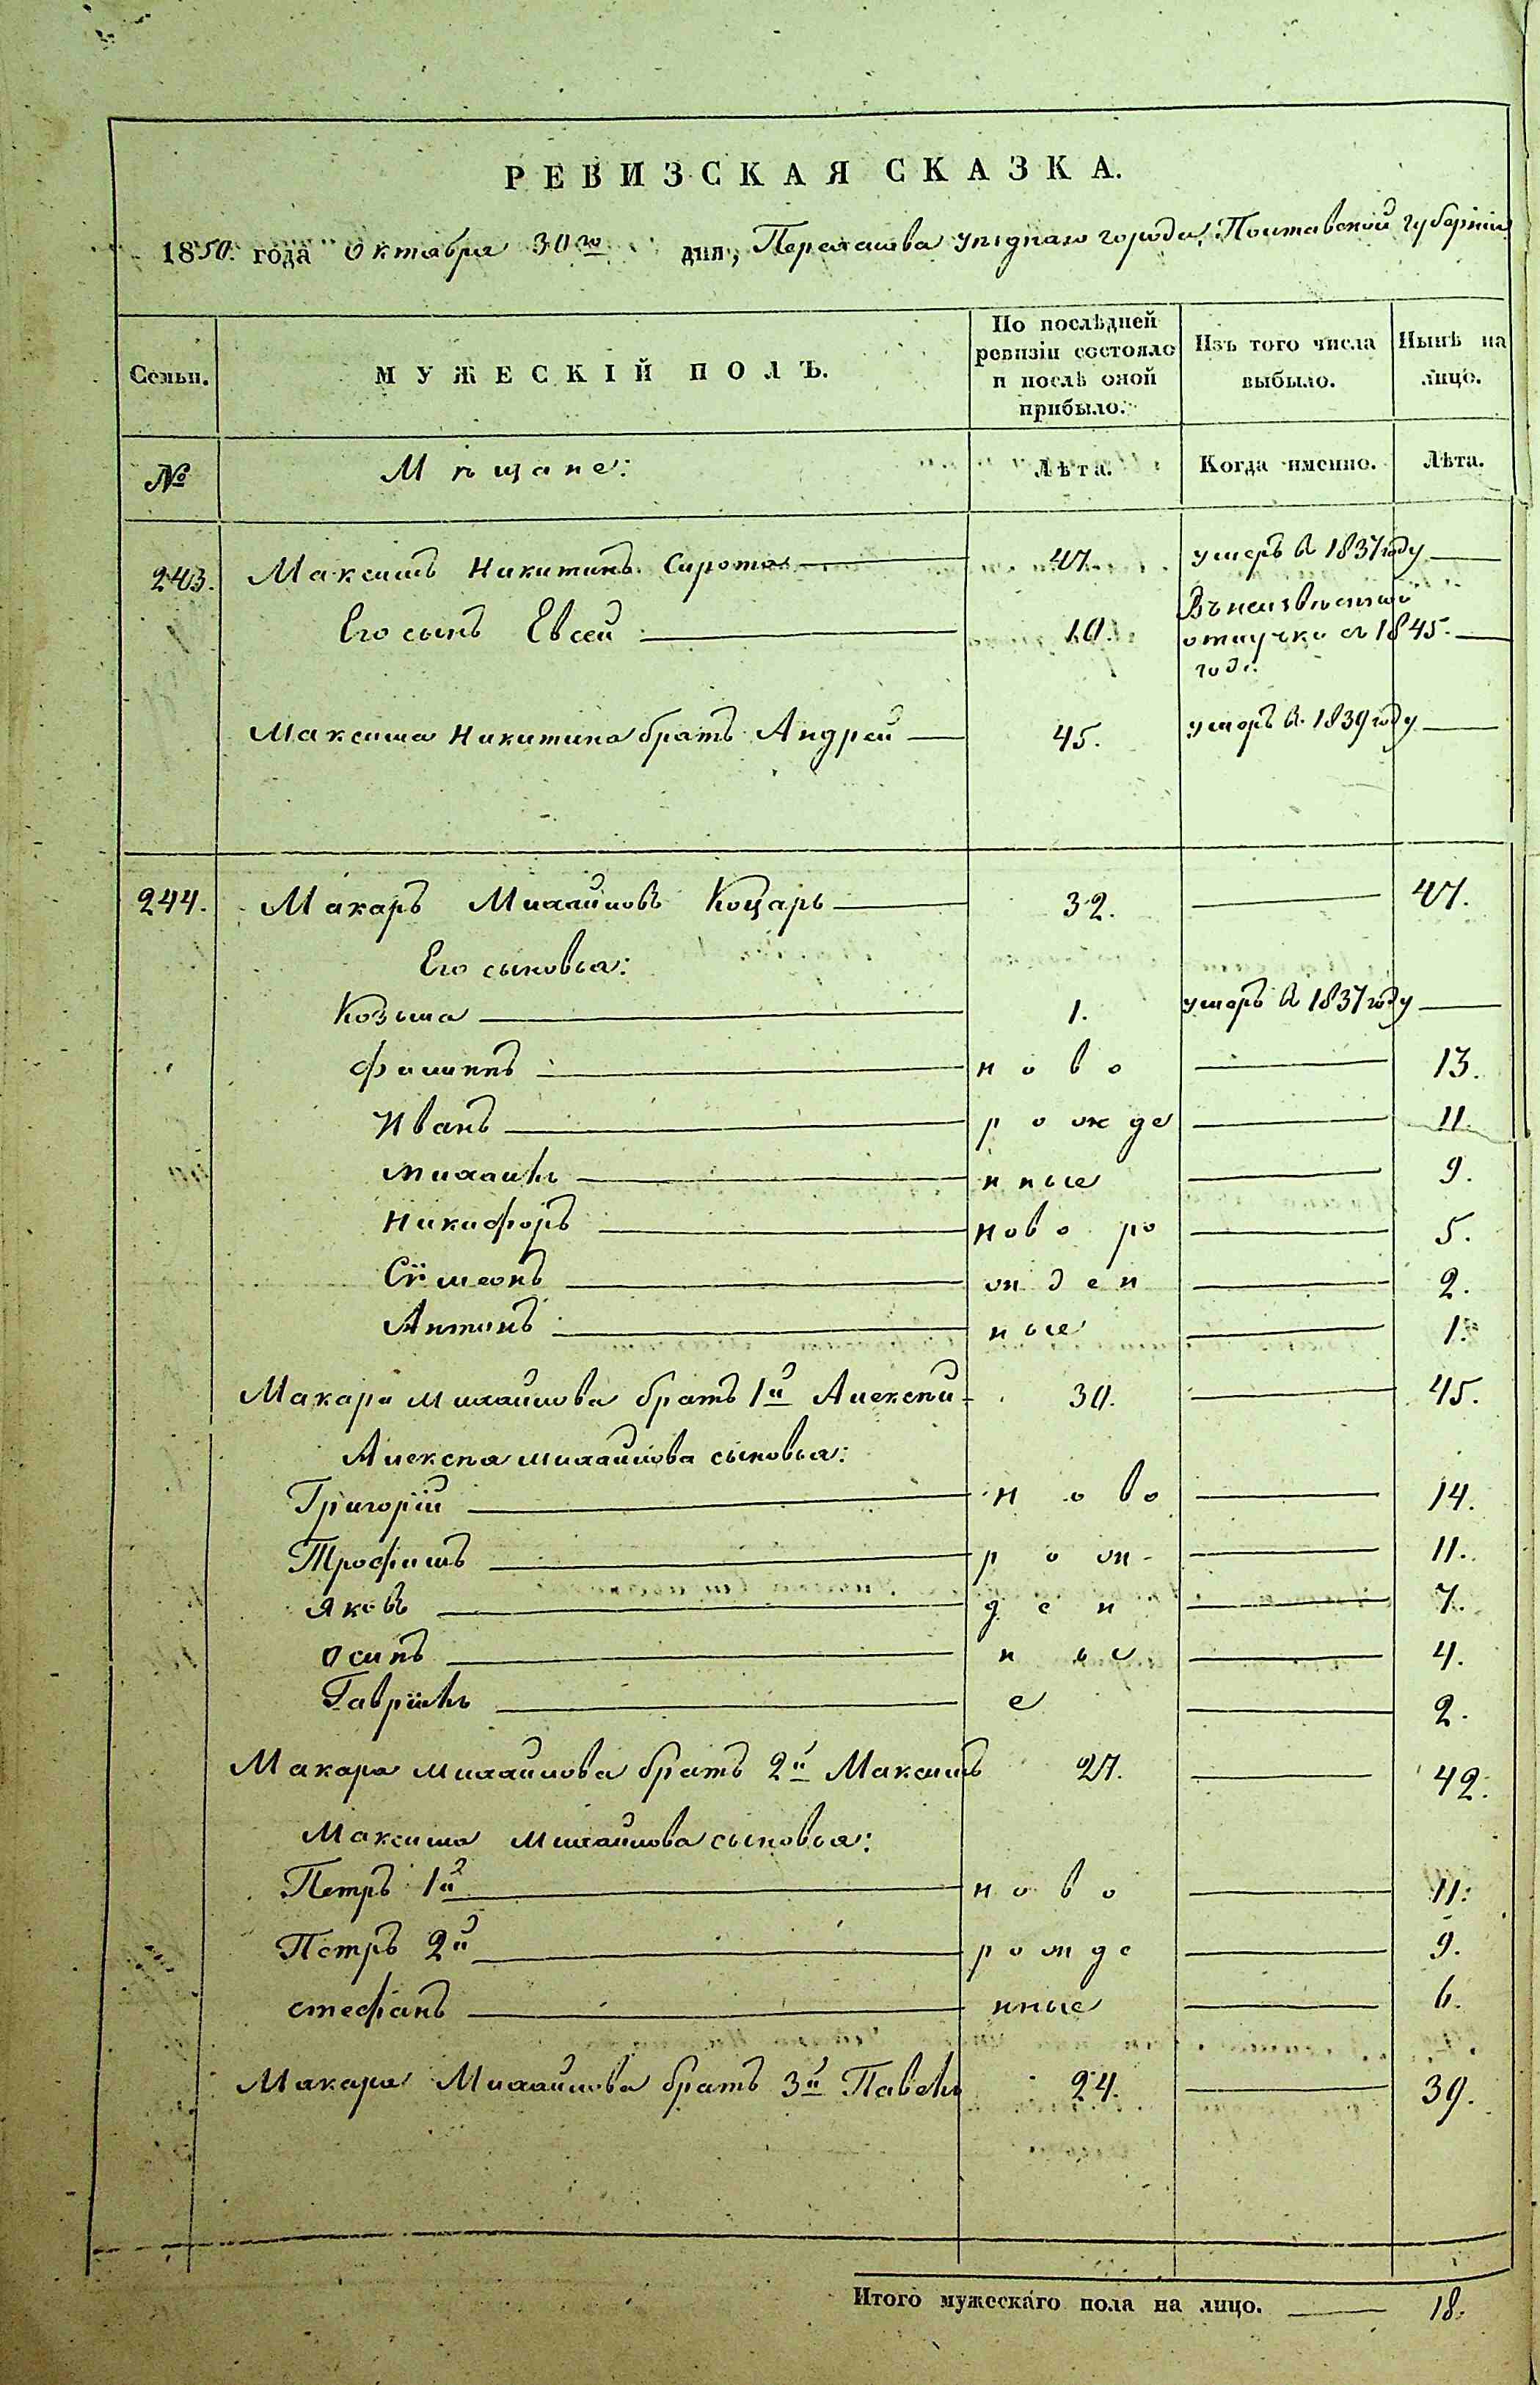 РЕВИЗСКАЯ СКАЗКА.
1850. года Октября 30го дня, Переяслова уѣзднаго города, Полтавской губерніи
Семьи. МУЖЕСКІЙ ПОЛЪ. По послѣдней ревизіи состояло и послѣ оной прибыло. Изъ того числа выбыло. Нынѣ на лицо.
№ Мѣщане: Лѣта. Когда именно. Лѣта.
243. Максимъ Никитинъ Сирота 47. умеръ в 1837 году
Его сынъ Евсей 10. Въ неизвѣстной
отлучке с 1845.
года.
Максима Никитина братъ Андрей 45. умеръ в 1839 году
244. Макаръ Михайловъ Коцарь 32. 47.
Его сыновья:
Козьма 1. умеръ в 1837 году
Филипъ ново 13.
Иванъ рожде 11.
Михаилъ нные 9.
Никифоръ ново ро 5.
Сѵмеонъ жден 2.
Антонъ ные 1.
Макара Михайлова братъ 1й Алексѣй 30. 45.
Алексѣя Михайлова сыновья:
Григорій ново 14.
Трофимъ рож- 11.
Яковъ ден 7.
Осипъ ны 4.
Гавріилъ е 2.
Макара Михайлова братъ 2й Максимъ 27. 42.
Максима Михайлова сыновья:
Петръ 1й ново 11.
Петръ 2й рожде 9.
Стефанъ нные 6.
Макара Михайлова братъ 3й Павелъ 24. 39.
Итого мужескаго пола на лицо. 18.